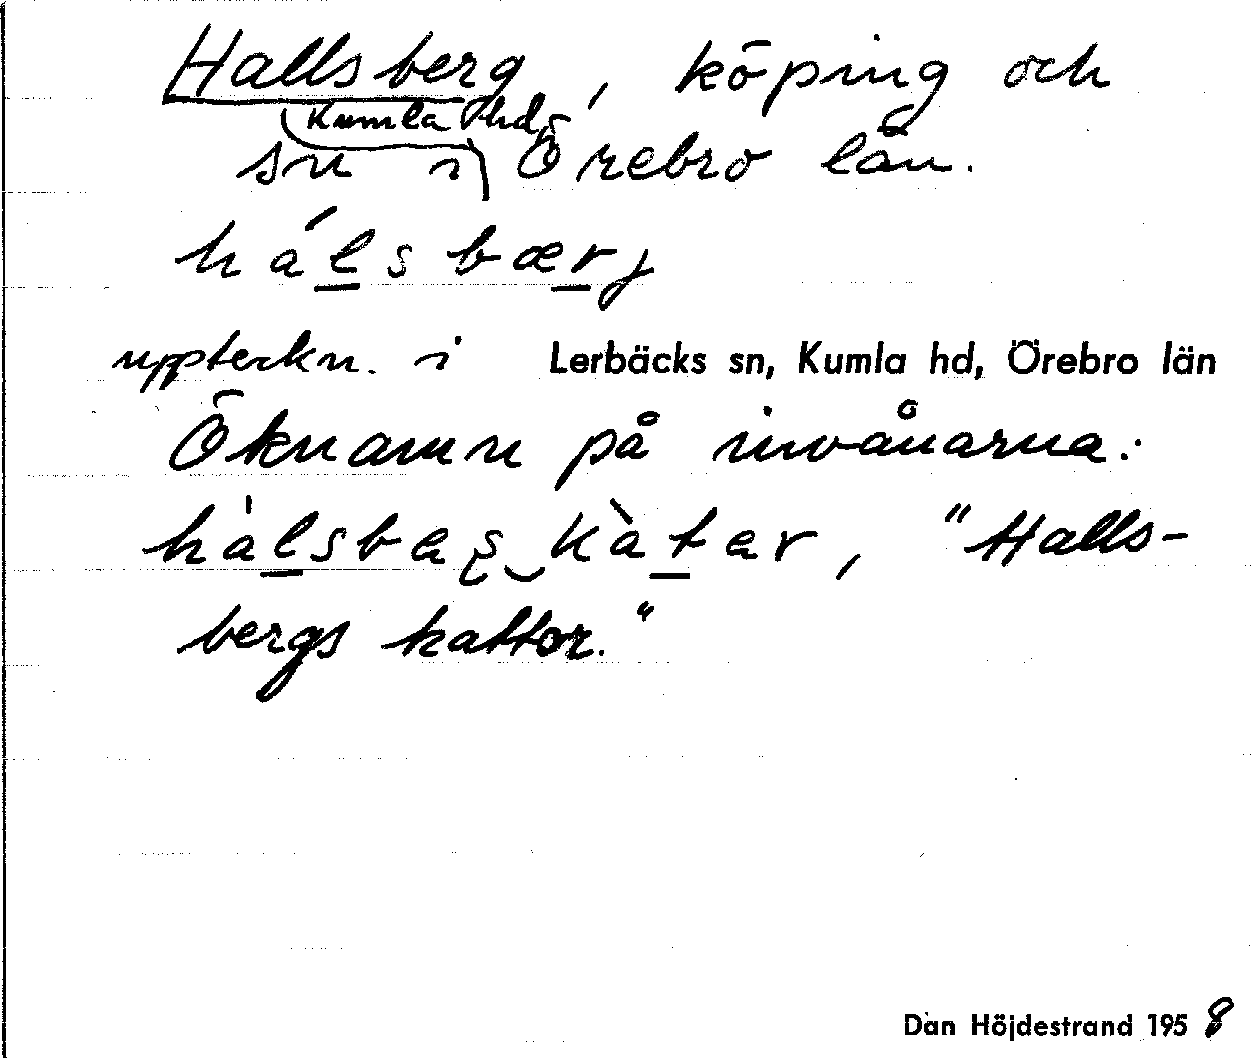 Hallsberg, köping och
Kumla hd,
sn i Örebro län.
hálsbærj
uppteckn. i Lerbäcks sn, Kumla hd, Örebro län
Öknamn på invånarna:
hàlsbaʂ‿kàtar, "Halls-
bergs kattor."
Dan Höjdestrand 1958